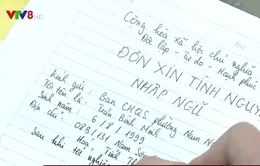 VTV8 HD
Cộng hòa xã hội chủ nghĩa
Độc lập - Tự do - Hạnh phúc
ĐƠN XIN TÌNH NGUYỆ
NHẬP NGŨ
Kính gửi: Ban CHQS phường Nam
Tôi tên là: Trần Bình Minh
Sinh năm: 6/8/1999
Địa chỉ: 089/131 Nam
Hòa, Tỉnh
Sau khi tốt nghiệp